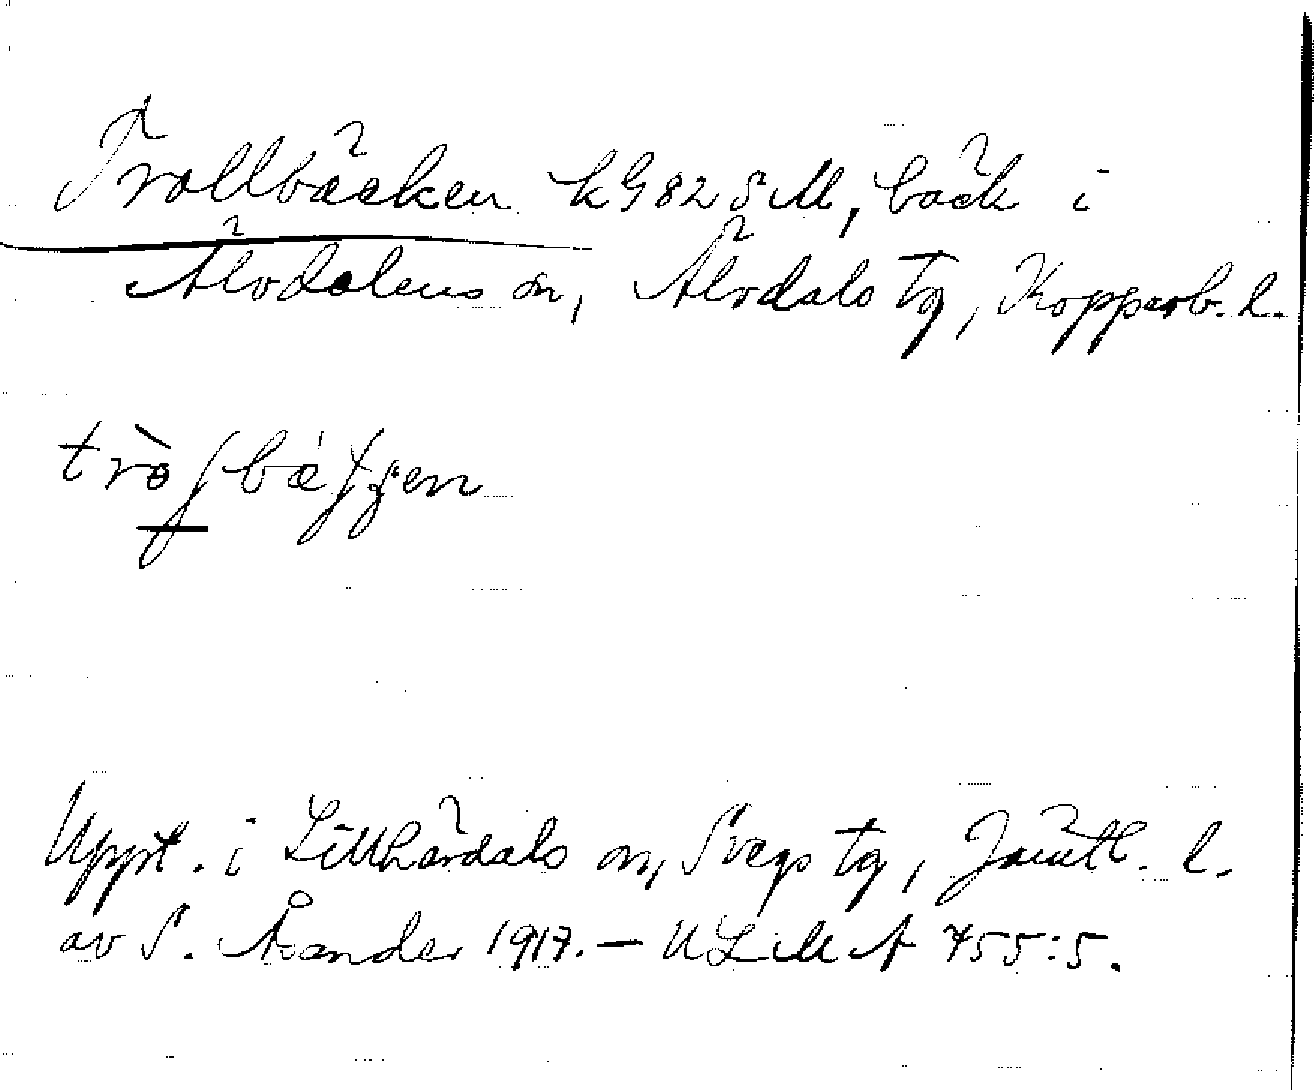 Trollbäcken kG82 SM, bäck i
Älvdalens sn, Älvdals tg, Kopparb. l.
Uppt. i Lillhärdals sn, Svegs tg, Jämtl. l.
av S. Åsander 1917. — ULMA 755:5.